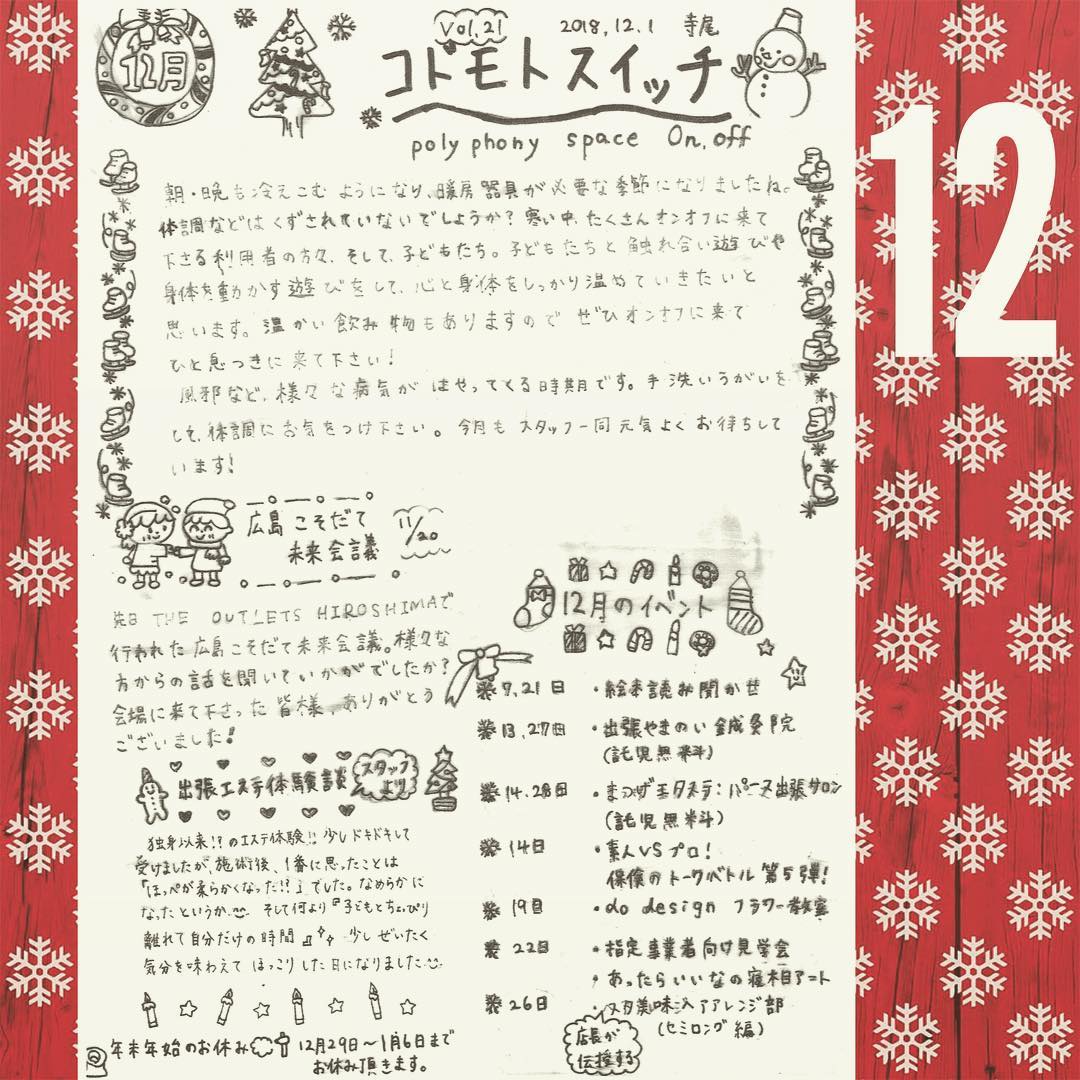 12月
Vol.21
2018.12.1 寺尾
コドモトスイッチ
polyphony space On,off
12
朝・晩も冷えこむようになり、暖房器具が必要な季節になりましたね。
体調などはくずされていないでしょうか?寒い中、たくさんオンオフに来て
下さる利用者の方々、そして、子どもたち。子どもたちと触れ合い遊びや
身体を動かす遊びをして、心と身体をしっかり温めていきたいと
思います。温かい飲み物もありますのでぜひオンオフに来て
ひと息つきに来て下さい!
風邪など、様々な病気がはやってくる時期です。手洗いうがいを
して、体調にお気をつけ下さい。今月もスタッフ一同元気よくお待ちして
います!
広島こそだて
未来会議
11/20
先日 THE OUTLETS HIROSHIMAで
行われた広島こそだて未来会議。様々な
方からの話を聞いていかがでしたか?
会場に来て下さった皆様、ありがとう
ございました!
出張エステ体験談
スタッフ
より
独身以来!?のエステ体験!! 少しドキドキして
受けましたが、施術後、1番に思ったことは
「ほっぺが柔らかくなった!?」でした。なめらかに
なったというか。そして何より『子どもとちょっぴり
離れて自分だけの時間』少しぜいたく
気分を味わえてほっこりした日になりました
年末年始のお休み
12月29日〜1月6日まで
お休み頂きます。
12月のイベント
7,21日 ・絵本読み聞かせ
13,27日 ・出張やまのい鍼灸院
(託児無料)
14.28日 ・まつげエクステ:パーヌ出張サロン
(託児無料)
14日 ・素人VSプロ!
保険のトークバトル 第5弾!
19日 ・do design フラワー教室
22日 ・指定事業者向け見学会
・あったらいいなの寝相アート
26日 ・アレンジ部
(セミロング編)
店長が
伝授する